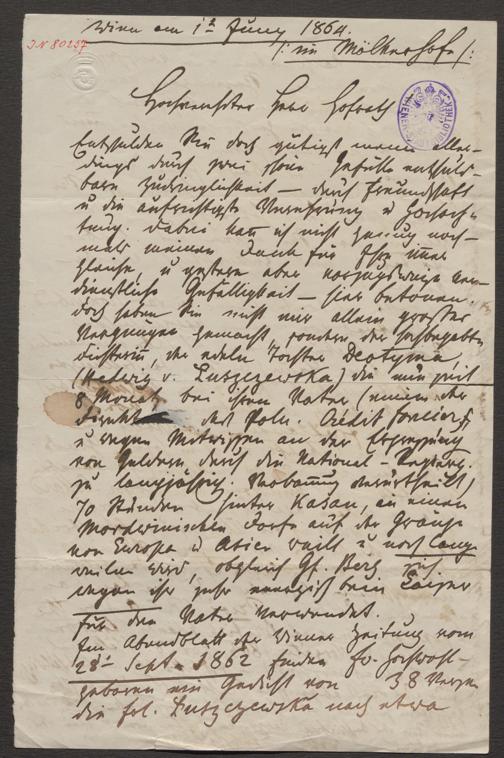 Wien am 1t Juny 1864.
/: im Mölkerhofe :/
JN 80257
Hochverehrter Herr Hofrath
Entschulden Sie doch gütigst meine aller-
dings durch zwei schöne Gefühle entschuld-
bare Zudringlichkeit – durch Freundschaft
u die aufrichtigste Verehrung u Hochach-
tung. Dabei kan ich nicht genug noch-
mals meinen Dank für Ihre immer
gleiche, u gestern aber vorzugsweise ver-
dienstliche Gefälligkeit – hier betonen.
Doch haben Sie nicht mir allein großes
Vergnügen gemacht, sondern der hochbegabten
Dichterin, der edeln Tochter Deotyma,
(Hedwig v. Łuszczewska) die nun seit
8 Monate bei ihrem Vater (einem der
Direkt der Poln. Crédit foncier
u wegen Mitwissen an der
von Geldern durch die National-Regierg.
zu langjähriger Verbannung verurtheilt)
70 Stunden hinter Kasan, in einem
Mordwinischen Dorfe auf der Gränze
von Europa u Asien weilt u noch lange
weilen wird, obgleich Gf. Berg sich
wegen ihr sehr energisch beim Kaiser
für den Vater verwendet.
Im Abendblatt der Wiener Zeitung vom
28t Sept. 1862 finden Eu. Hochwohl-
geboren ein Gedicht von 38 Versen
die Frl. Łuszczewska nach etwa